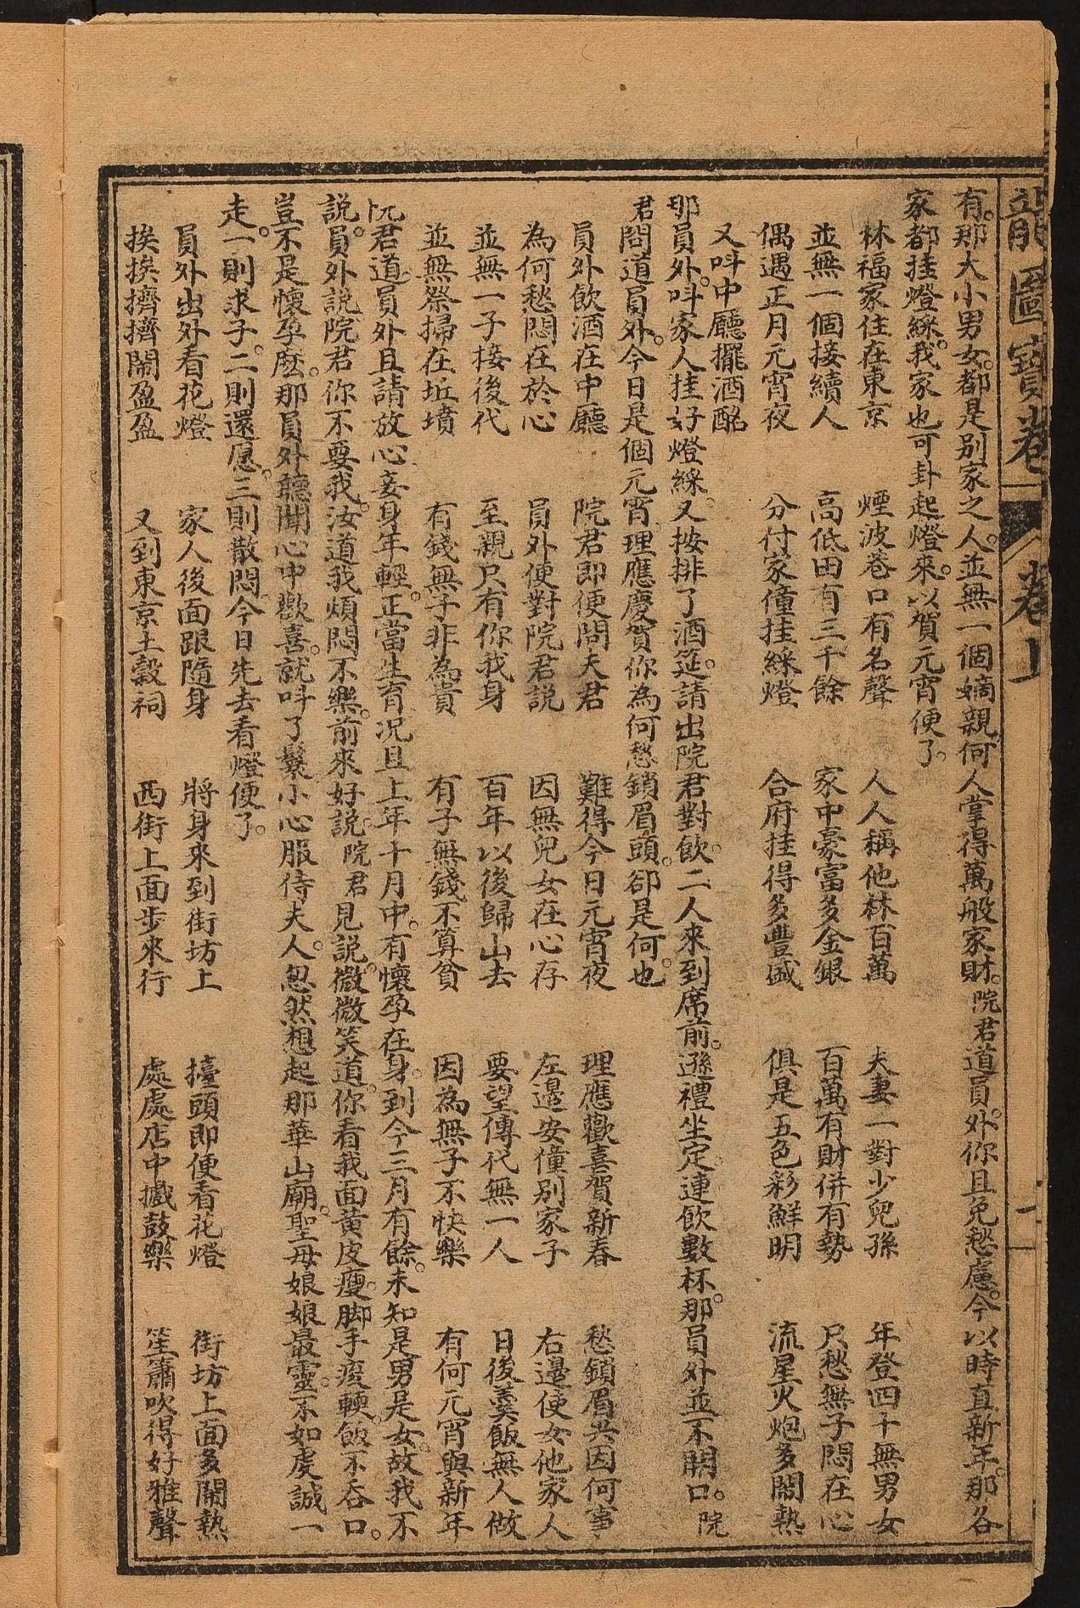 龍圖寶卷 卷上 一
有。那大小男女。都是別家之人。並無一個嫡親。何人掌得萬般家財。院君道。員外你且免愁慮。今以時直新年。那各
家都挂燈綵。我家也可卦起燈來。以賀元宵便了。
林福家住在東京 煙波巷口有名聲 人人稱他林百萬 夫妻一對少兒孫 年登四十無男女
並無一個接續人 高低田有三千餘 家中豪富多金銀 百萬有財併有勢 只愁無子悶在心
偶遇正月元宵夜 分付家僮挂綵燈 合府挂得多豊盛 俱是五色彩鮮明 流星火炮多鬧熱
又呌中廳擺酒酩
那員外。呌家人挂好燈綵。又按排了酒筵。請出院君對飲。二人來到席前。遜禮坐定。連飲數杯。那員外並不開口。院
君問道員外。今日是個元宵。理應慶賀。你為何愁鎖眉頭。卻是何也。
員外飲酒在中廳 院君即便問夫君 難得今日元宵夜 理應歡喜賀新春 愁鎖眉尖因何事
為何愁悶在於心 員外便對院君説 因無兒女在心存 左邉安僮別家子 右邉使女他家人
並無一子接後代 至親只有你我身 百年以後歸山去 要望傳代無一人 日後羹飯無人做
並無祭掃在坵墳 有錢無子非為貴 有子無錢不算貧 因為無子不快樂 有何元宵與新年
院君道。員外且請放心。妾身年輕。正當生育。况且上年十月中。有懷孕在身。到今三月有餘。未知是男是女。故我不
説。員外説院君你不要我。汝道我煩悶不樂。前來好説。院君見説。微微笑道。你看我面黃皮瘦。脚手痠軟。飯不吞口。
豈不是懷孕麽。那員外聽聞。心中歡喜。就呌了鬟小心服侍夫人。忽然想起那華山廟。聖母娘娘最靈。不如虔誠一
走。一則求子。二則還愿。三則散悶。今日先去看燈便了。
員外出外看花燈 家人後面跟隨身 將身來到街坊上 擡頭即便看花燈 街坊上面多鬧熱
挨挨擠擠鬧盈盈 又到東京土穀祠 西街上面步來行 處處店中撾鼓樂 笙簫吹得好雅聲